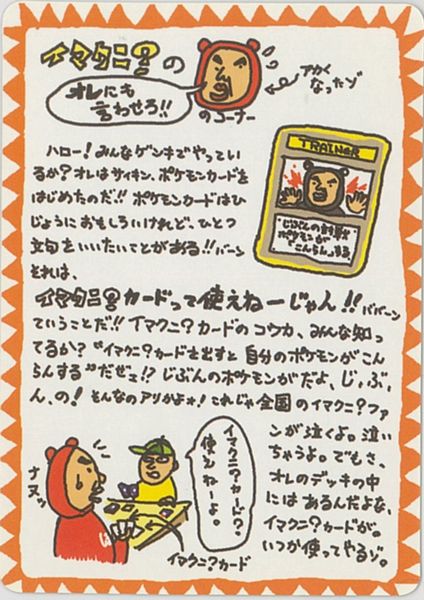 イマクニ?の
オレにも
言わせろ!!
のコーナー
アカく
なったゾ
ハロー!みんなゲンキでやってい
るか?オレはサイキン、ポケモンカードを
はじめたのだ!!ポケモンカードはひ
じょうにおもしろいけれど、ひとつ
文句をいいたいことがある!!バーン
それは、
TRAINER
じぶんの
ポケモンが
こんらんする
イマクニ?カードって使えねーじゃん!!ババーン
ていうことだ!!イマクニ?カードのコウカ、みんな知っ
てるか?“イマクニ?カードを出すと自分のポケモンがこん
らんする”だぜェ!?じぶんのポケモンがだよ、じ、ぶ、
ん、の!そんなのアリかよォ!これじゃ全国のイマクニ?ファ
ンが泣くよ。泣い
ちゃうよ。でもさ、
オレのデッキの中
にはあるんだよな、
イマクニ?カードが。
いつか使ってやるゾ。
イマクニ?カード?
使えねーよ。
ナヌッ
イマクニ?カード